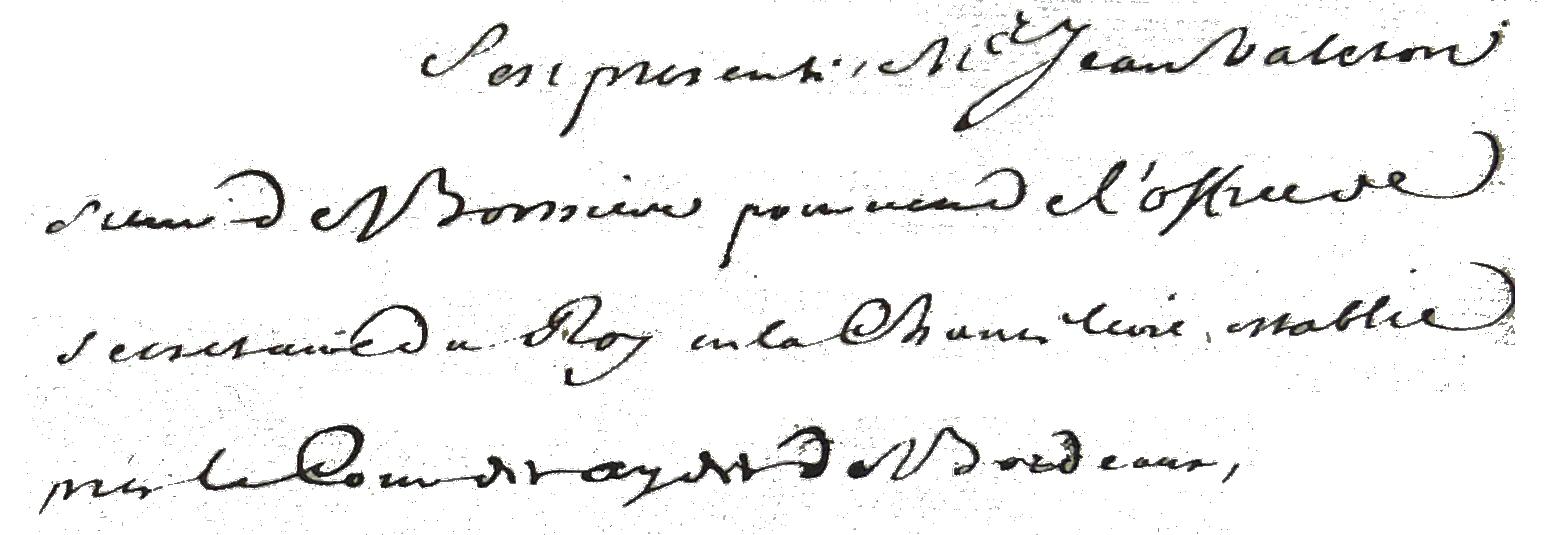 S'est presenté, Me Jean Valeton
sieur de Boissiere pourveu de l'office de
secretaire du Roy en la Chancelerie establie
pres la Cour des aydes de Bordeaux,